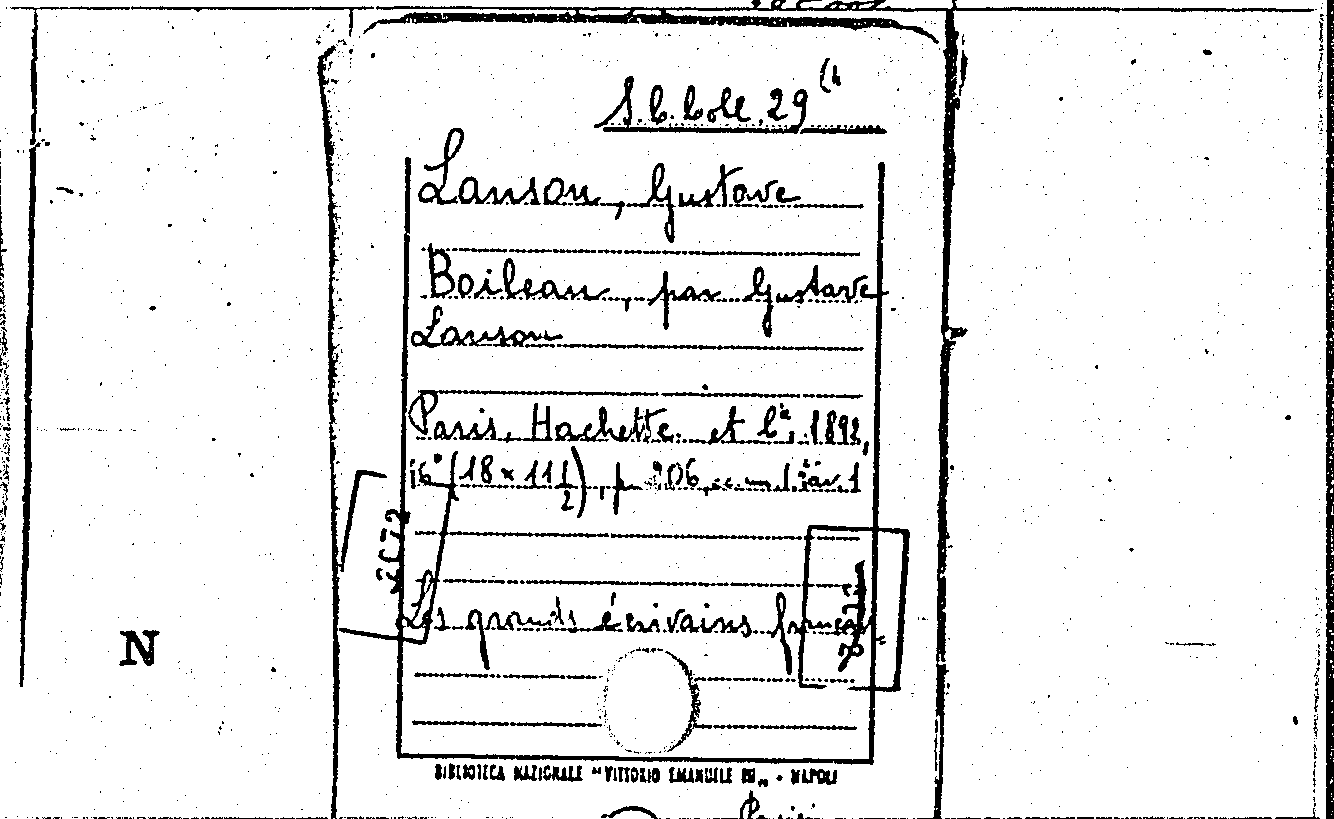 S. C. Coll. 29 (4
Lanson, Gustave
Boileau, par Gustave
Lanson
Paris, Hachette et C.ie, 1892,
16° (18 × 11 1/2), p. 206, 1 tav. 1
Les grands écrivains français
N
BIBLIOTECA NAZIONALE "VITTORIO EMANUELE III„ - NAPOLI